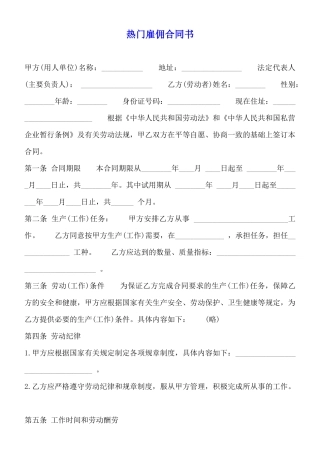 热门雇佣合同书
甲方(用人单位)名称：__________ 地址：__________ 法定代表人
(主要负责人)：__________ 乙方(劳动者)姓名：__________ 性别：
________年龄：________ 身份证号码：________现住址：________
________________ 根据《中华人民共和国劳动法》和《中华人民共和国私营
企业暂行条例》及有关劳动法规，甲乙双方在平等自愿、协商一致的基础上签订本
合同。
第一条 合同期限 本合同期限从____年____月____日起至____年
____月____日止，共____年。其中试用期从____年____月____日起至____
年____月____日止，共____个月。
第二条 生产(工作)任务： 甲方安排乙方从事 ______________ 工
作。 乙方同意按甲方生产(工作)需要，在__________，承担任务，担任__
________工种。 乙方应达到的数量、质量指标：__________________
__________。
第三条 劳动(工作)条件 为保证乙方完成合同要求的生产(工作)任务，保障乙
方的安全和健康，甲方应根据国家有关安全生产、劳动保护、卫生健康等规定，为
乙方提供必要的生产(工作)条件。具体内容如下： (略)
第四条 劳动纪律
1.甲方应根据国家有关规定制定各项规章制度。具体内容如下：__________
________。
2.乙方应严格遵守劳动纪律和规章制度，服从甲方管理，积极完成所从事的工作。
第五条 工作时间和劳动酬劳